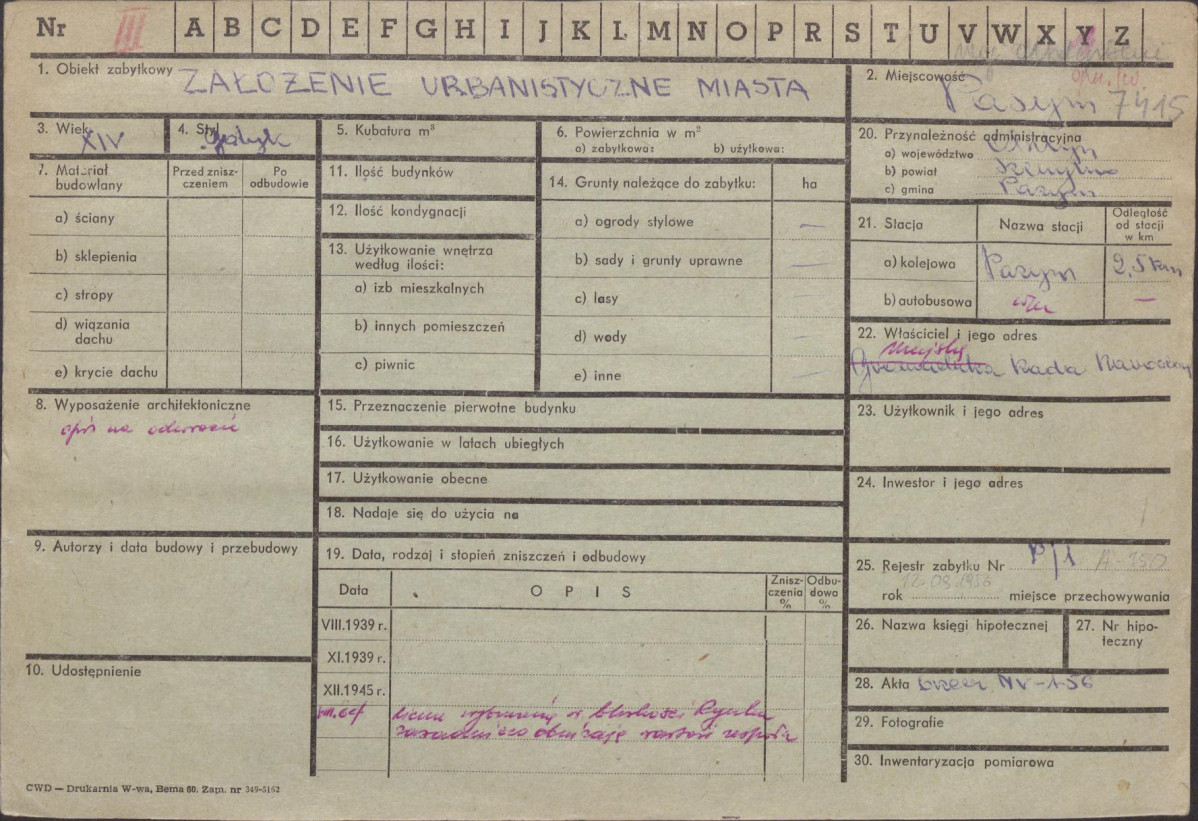 Nr III A B C D E F G H I J K L M N O P R S T U V W X Y Z
1. Obiekt zabytkowy ZAŁOŻENIE URBANISTYCZNE MIASTA
2. Miejscowość Pasym 7415
3. Wiek XIV
4. Styl gotyk
5. Kubatura m³
6. Powierzchnia w m²
a) zabytkowa: b) użytkowa:
7. Materiał budowlany
Przed zniszczeniem
Po odbudowie
a) ściany
b) sklepienia
c) stropy
d) wiązania dachu
e) krycie dachu
8. Wyposażenie architektoniczne
opis na odwrocie
9. Autorzy i data budowy i przebudowy
10. Udostępnienie
11. Ilość budynków
12. Ilość kondygnacji
13. Użytkowanie wnętrza według ilości:
a) izb mieszkalnych
b) innych pomieszczeń
c) piwnic
14. Grunty należące do zabytku: ha
a) ogrody stylowe —
b) sady i grunty uprawne —
c) lasy —
d) wody —
e) inne —
15. Przeznaczenie pierwotne budynku
16. Użytkowanie w latach ubiegłych
17. Użytkowanie obecne
18. Nadaje się do użycia na
19. Data, rodzaj i stopień zniszczeń i odbudowy
Data O P I S Zniszczenia % Odbudowa %
VIII.1939 r.
XI.1939 r.
XII.1945 r.
w bliskości Rynku
zasadniczo obniżają wartość zespołu
20. Przynależność administracyjna
a) województwo Olsztyn
b) powiat Szczytno
c) gmina Pasym
21. Stacja Nazwa stacji Odległość od stacji w km
a) kolejowa Pasym 2,5 km
b) autobusowa —
22. Właściciel i jego adres
Miejska
Gromadzka Rada Narodowa
23. Użytkownik i jego adres
24. Inwestor i jego adres
25. Rejestr zabytku Nr P/1 A-150
rok 12.09.1956 miejsce przechowywania
26. Nazwa księgi hipotecznej
27. Nr hipoteczny
28. Akta IV-1-56
29. Fotografie
30. Inwentaryzacja pomiarowa
CWD — Drukarnia W-wa, Bema 60. Zam. nr 349-5162